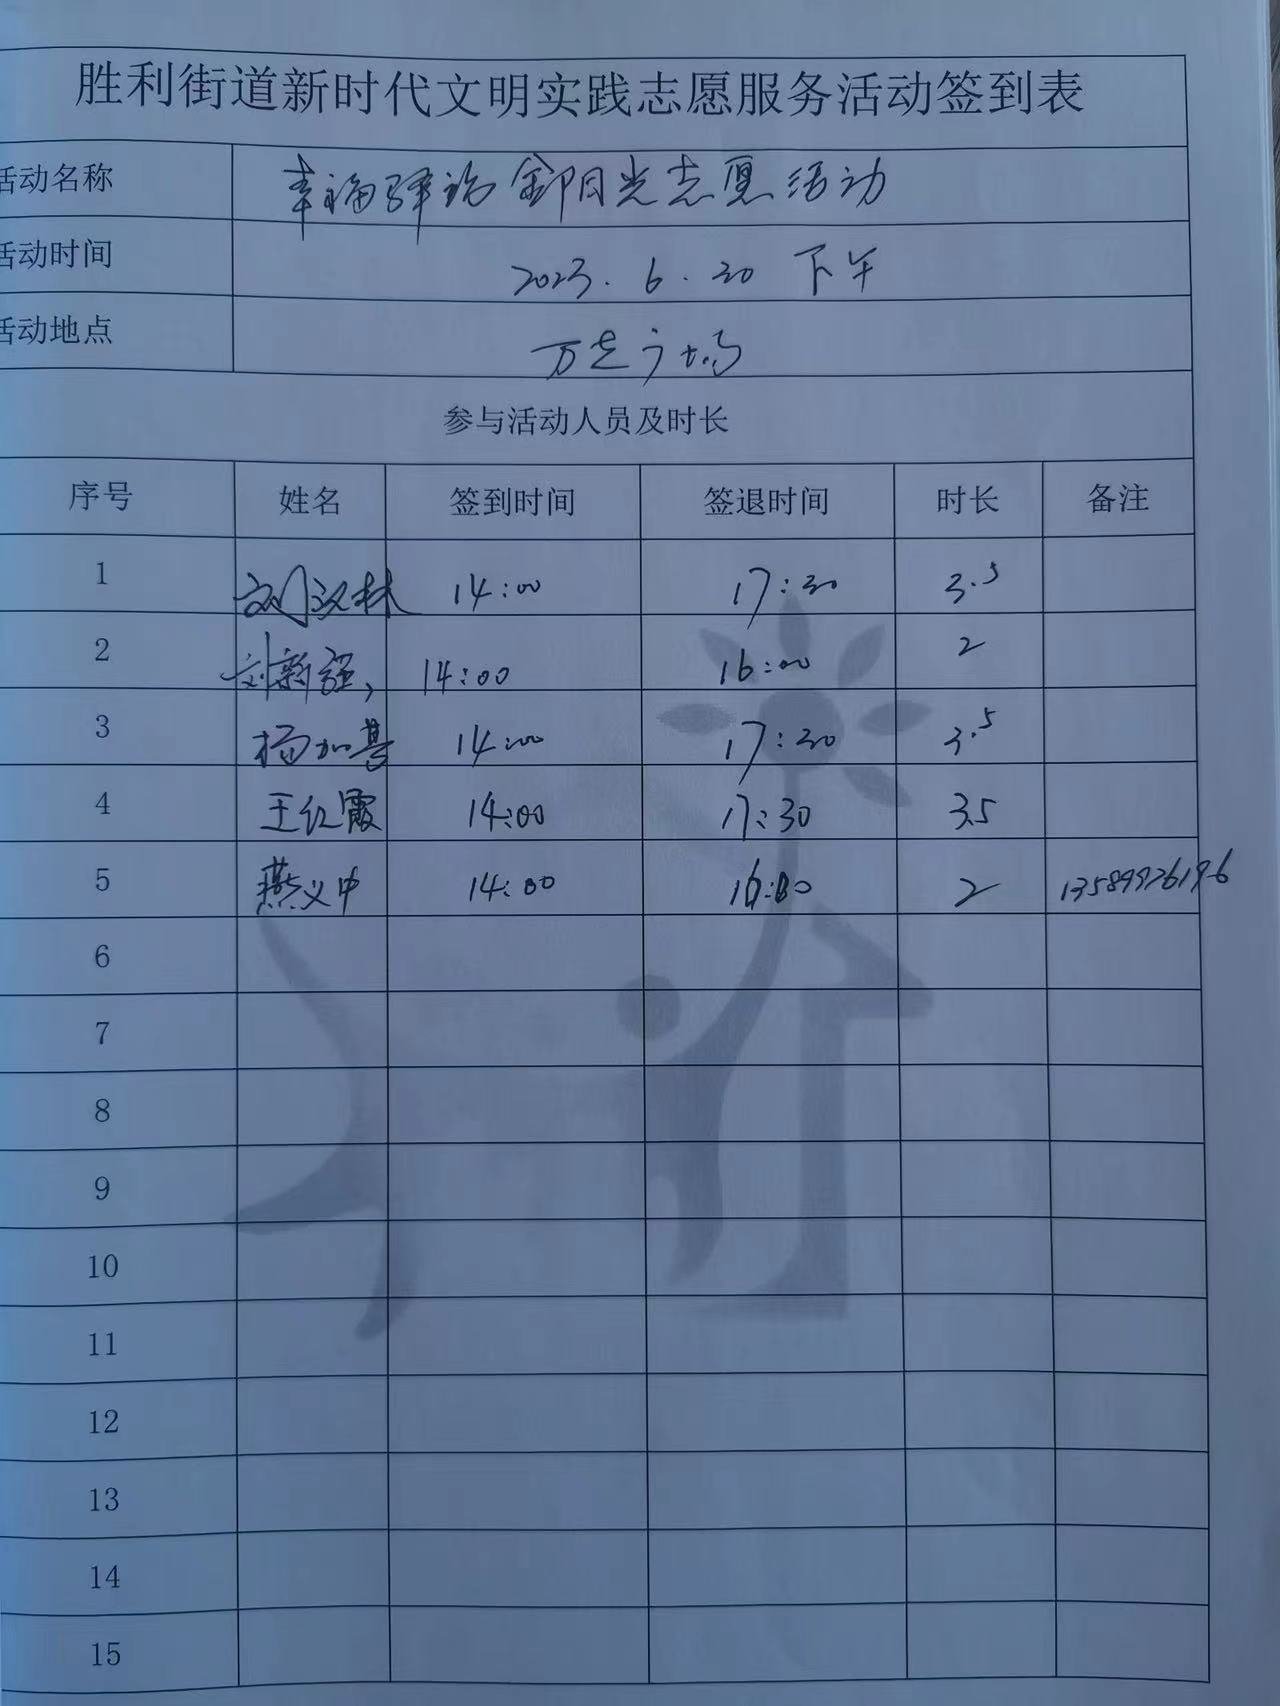 胜利街道新时代文明实践志愿服务活动签到表
活动名称 幸福驿站 鄒阳光志愿活动
活动时间 2023.6.20 下午
活动地点 万达广场
参与活动人员及时长
序号 姓名 签到时间 签退时间 时长 备注
1 刘汉林 14:00 17:30 3.5
2 刘新强, 14:00 16:00 2
3 杨加善 14:00 17:30 3.5
4 王红霞 14:00 17:30 3.5
5 燕义中 14:00 16:00 2 13589926196
6
7
8
9
10
11
12
13
14
15